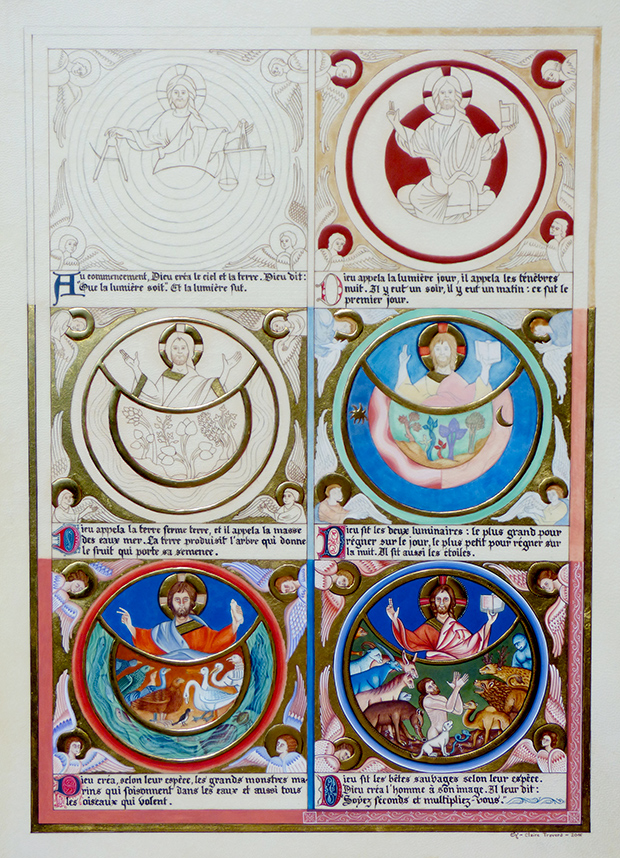 Au commencement, Dieu créa le ciel et la terre. Dieu dit:
Que la lumière soit. Et la lumière fut.
Dieu appela la lumière jour, il appela les ténèbres
nuit. Il y eut un soir, il y eut un matin: ce fut le
premier jour.
Dieu appela la terre ferme terre, et il appela la masse
des eaux mer. La terre produisit l'arbre qui donne
le fruit qui porte sa semence.
Dieu fit les deux luminaires: le plus grand pour
régner sur le jour, le plus petit pour régner sur
la nuit. Il fit aussi les étoiles.
Dieu créa, selon leur espèce, les grands monstres ma-
rins qui foisonnent dans les eaux et aussi tous
les oiseaux qui volent.
Dieu fit les bêtes sauvages selon leur espèce.
Dieu créa l'homme à son image. Il leur dit:
Soyez féconds et multipliez-vous.
Claire Travers